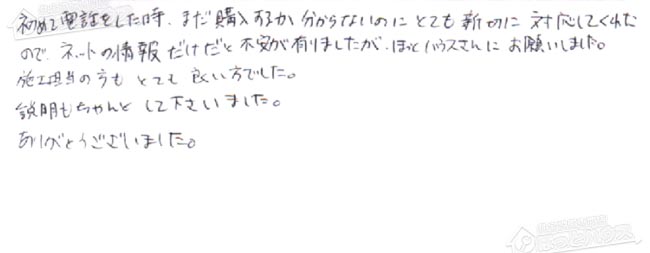 初めて電話をした時、まだ購入するか分からないのにとても親切に対応してくれた
ので、ネットの情報だけだと不安が有りましたが、ほっとハウスさんにお願いしました。
施工担当の方もとても良い方でした。
説明もちゃんとして下さいました。
ありがとうございました。
ほっとハウス